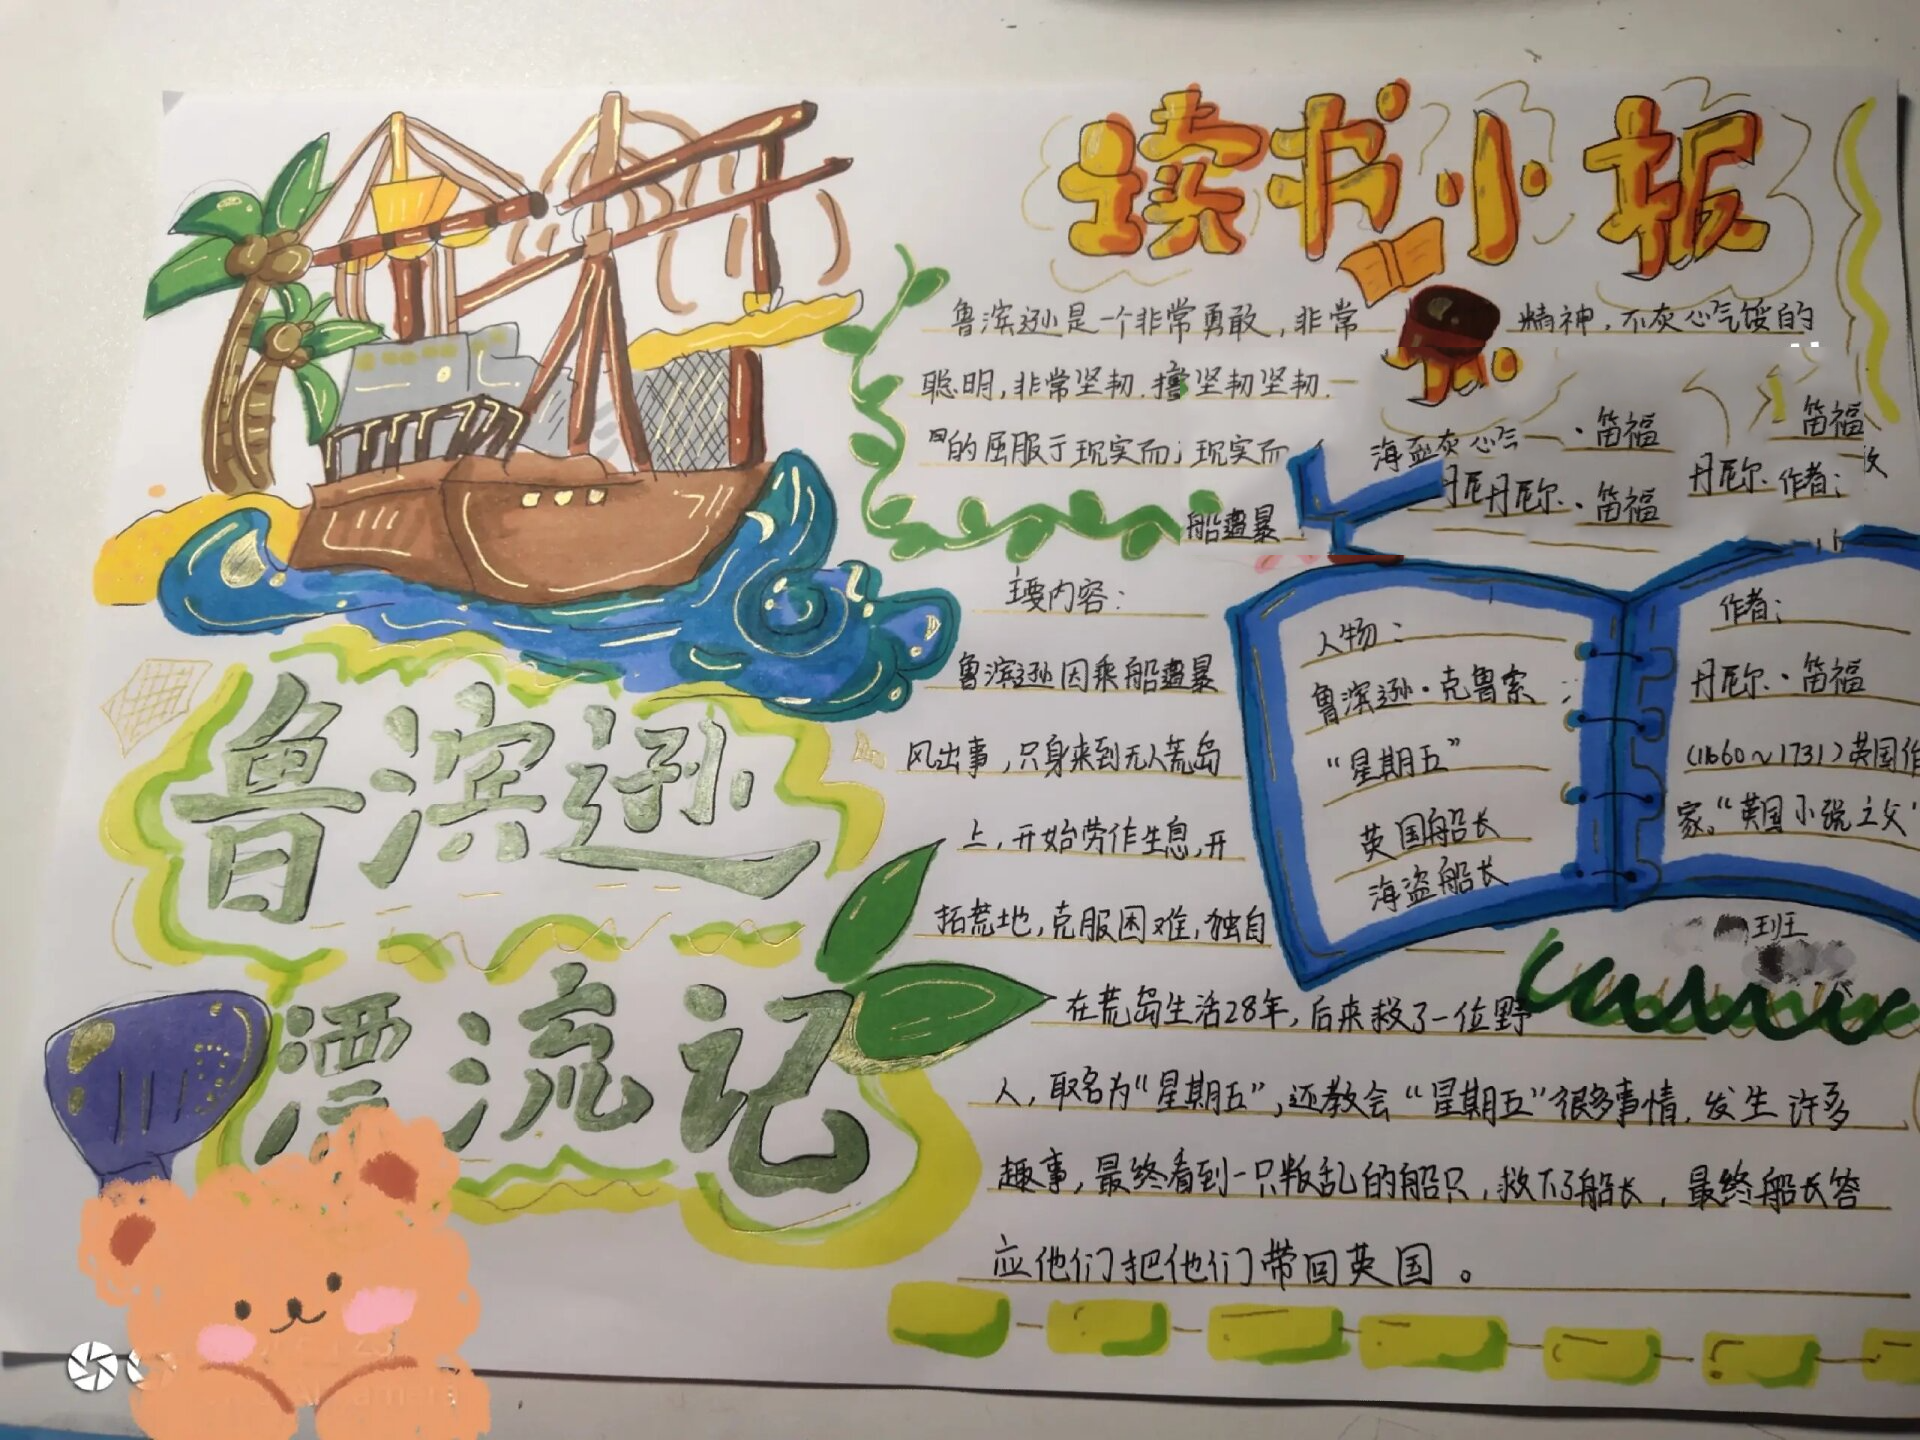 读书小报
鲁滨逊是一个非常勇敢，非常
精神，不灰心气馁的
聪明，非常坚韧.撸坚韧坚韧.
的屈服于现实而；现实而
海 灰心气 · 笛福
笛福
丹尼丹尼尔·笛福
丹尼尔·作者：
船遭暴
主要内容：
鲁滨逊因乘船遭暴
风出事，只身来到无人荒岛
上，开始劳作生息，开
拓荒地，克服困难，独自
在荒岛生活28年，后来救了一位野
人，取名为“星期五”，还教会“星期五”很多事情，发生许多
趣事，最终看到一只叛乱的船只，救下了船长，最终船长答
应他们把他们带回英国。
人物：
鲁滨逊·克鲁索
“星期五”
英国船长
海盗船长
作者：
丹尼尔·笛福
(1660~1731)英国作
家。“英国小说之父”
班
鲁滨逊
漂流记